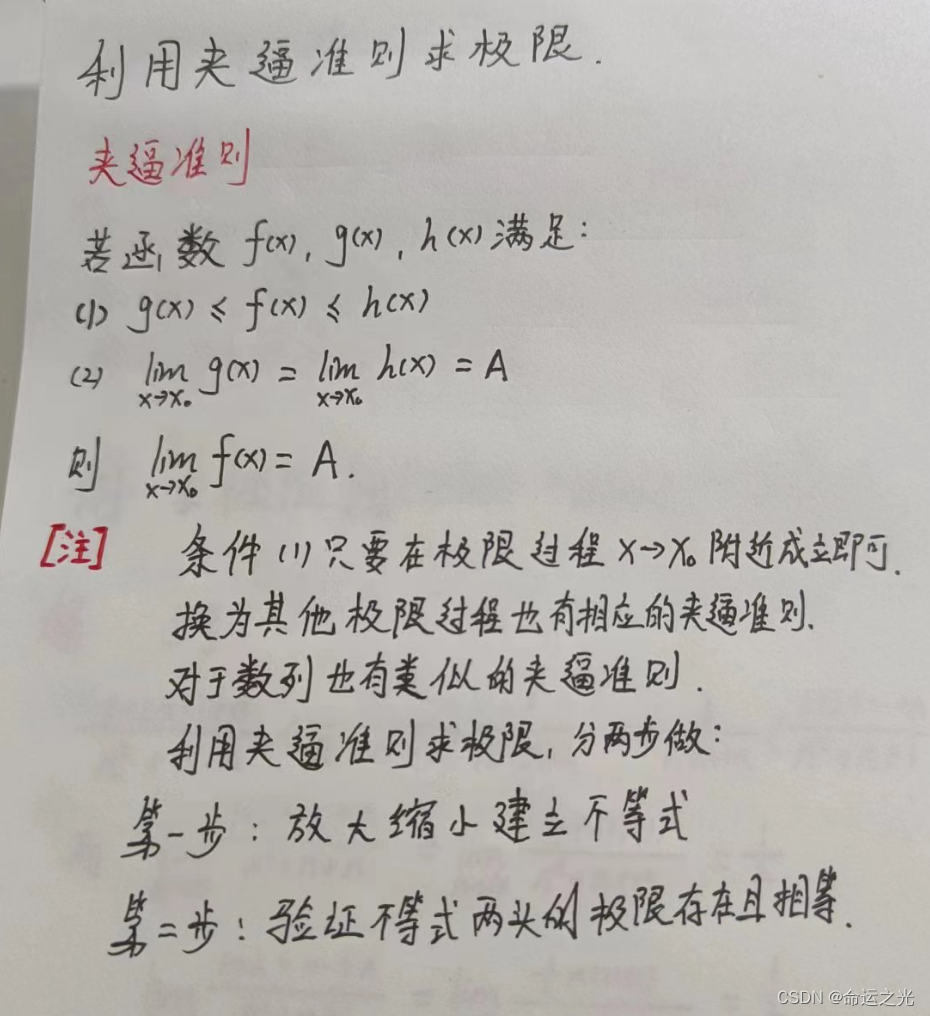 利用夹逼准则求极限.
夹逼准则
若函数 f(x), g(x), h(x)满足:
(1) g(x) ≤ f(x) ≤ h(x)
(2) lim x→x₀ g(x) = lim x→x₀ h(x) = A
则 lim x→x₀ f(x) = A.
[注] 条件(1)只要在极限过程 x→x₀ 附近成立即可.
换为其他极限过程也有相应的夹逼准则.
对于数列也有类似的夹逼准则.
利用夹逼准则求极限,分两步做:
第一步:放大缩小建立不等式
第二步:验证不等式两头的极限存在且相等.
CSDN @命运之光